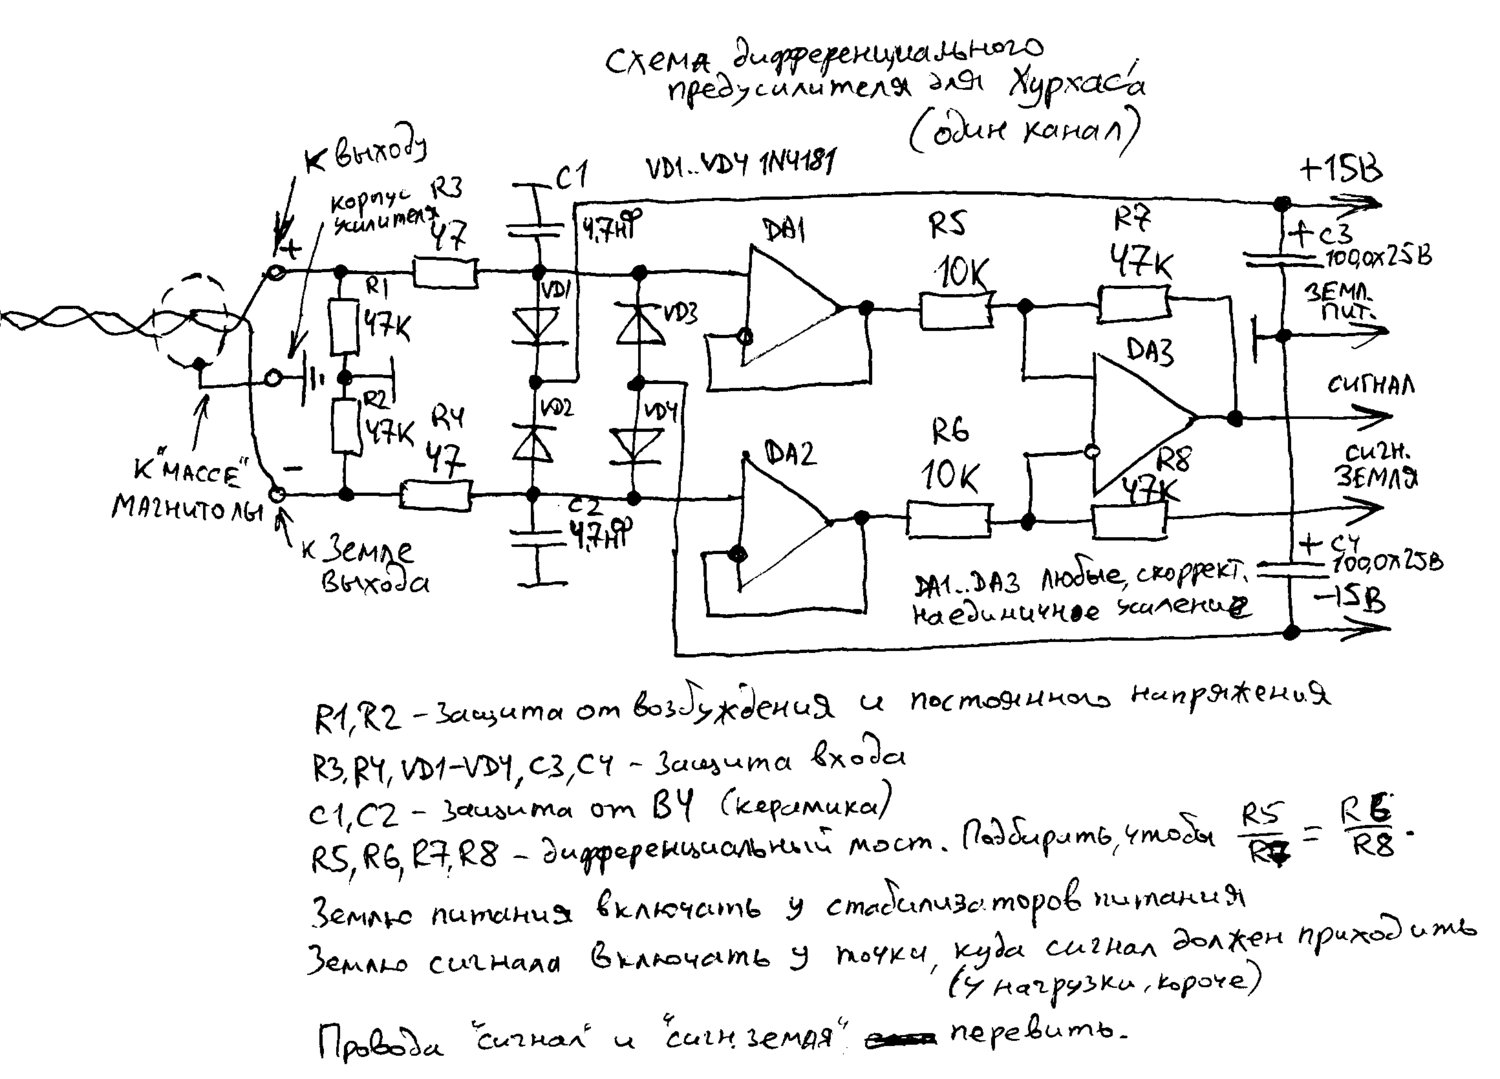 Схема дифференциального
предусилителя для Хурхаса
(один канал)
К выходу
корпус
усилителя
R3
47
C1
4,7нФ
VD1..VD4 1N4181
+15В
+ C3
100,0х25В
ЗЕМЛ.
ПИТ.
СИГНАЛ
СИГН.
ЗЕМЛЯ
+ C4
100,0х25В
-15В
+
R1
47К
R2
47К
R4
47
-
VD1
VD3
VD2
VD4
DA1
R5
10К
R7
47К
DA3
DA2
R6
10К
R8
47К
C2
4,7нФ
К "МАССЕ"
МАГНИТОЛЫ
К Земле
выхода
DA1..DA3 любые, скоррект.
на единичное усиление
R1, R2 - Защита от возбуждения и постоянного напряжения
R3, R4, VD1-VD4, C3, C4 - Защита входа
C1, C2 - Защита от ВЧ (керамика)
R5, R6, R7, R8 - дифференциальный мост. Подбирать, чтобы R5/R7 = R6/R8.
Землю питания включать у стабилизаторов питания
Землю сигнала включать у точки, куда сигнал должен приходить
(у нагрузки, короче)
Провода "сигнал" и "сигн. земля" перевить.